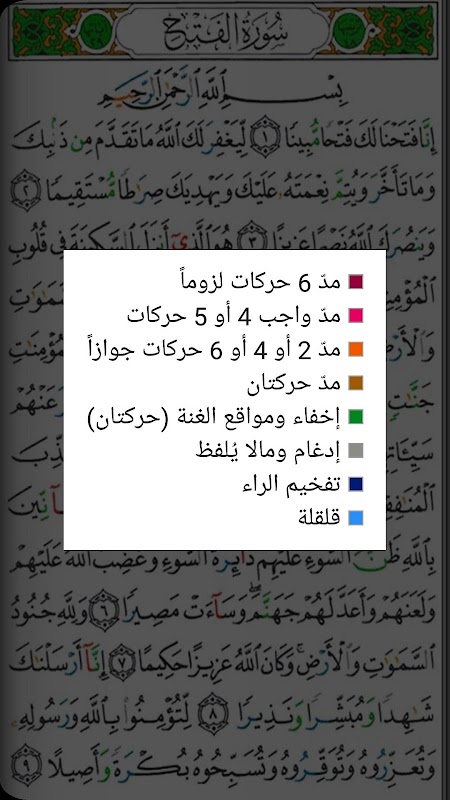 سُورَةُ الفَتْحِ
بِسْمِ اللَّهِ الرَّحْمَٰنِ الرَّحِيمِ
إِنَّا فَتَحْنَا لَكَ فَتْحًا مُّبِينًا ١ لِّيَغْفِرَ لَكَ اللَّهُ مَا تَقَدَّمَ مِن ذَنبِكَ
وَمَا تَأَخَّرَ وَيُتِمَّ نِعْمَتَهُ عَلَيْكَ وَيَهْدِيَكَ صِرَاطًا مُّسْتَقِيمًا ٢
وَيَنصُرَكَ اللَّهُ نَصْرًا عَزِيزًا ٣ هُوَ الَّذِي أَنزَلَ السَّكِينَةَ فِي قُلُوبِ
مدّ 6 حركات لزوماً
مدّ واجب 4 أو 5 حركات
مدّ 2 أو 4 أو 6 حركات جوازاً
مدّ حركتان
إخفاء ومواقع الغنة (حركتان)
إدغام ومالا يُلفظ
تفخيم الراء
قلقلة
بِاللَّهِ ظَنَّ السَّوْءِ عَلَيْهِمْ دَائِرَةُ السَّوْءِ وَغَضِبَ اللَّهُ عَلَيْهِمْ
وَلَعَنَهُمْ وَأَعَدَّ لَهُمْ جَهَنَّمَ وَسَآءَتْ مَصِيرًا ٦ وَلِلَّهِ جُنُودُ
السَّمَٰوَٰتِ وَالْأَرْضِ وَكَانَ اللَّهُ عَزِيزًا حَكِيمًا ٧ إِنَّآ أَرْسَلْنَٰكَ
شَٰهِدًا وَمُبَشِّرًا وَنَذِيرًا ٨ لِّتُؤْمِنُوا بِاللَّهِ وَرَسُولِهِ
وَتُعَزِّرُوهُ وَتُوَقِّرُوهُ وَتُسَبِّحُوهُ بُكْرَةً وَأَصِيلًا ٩